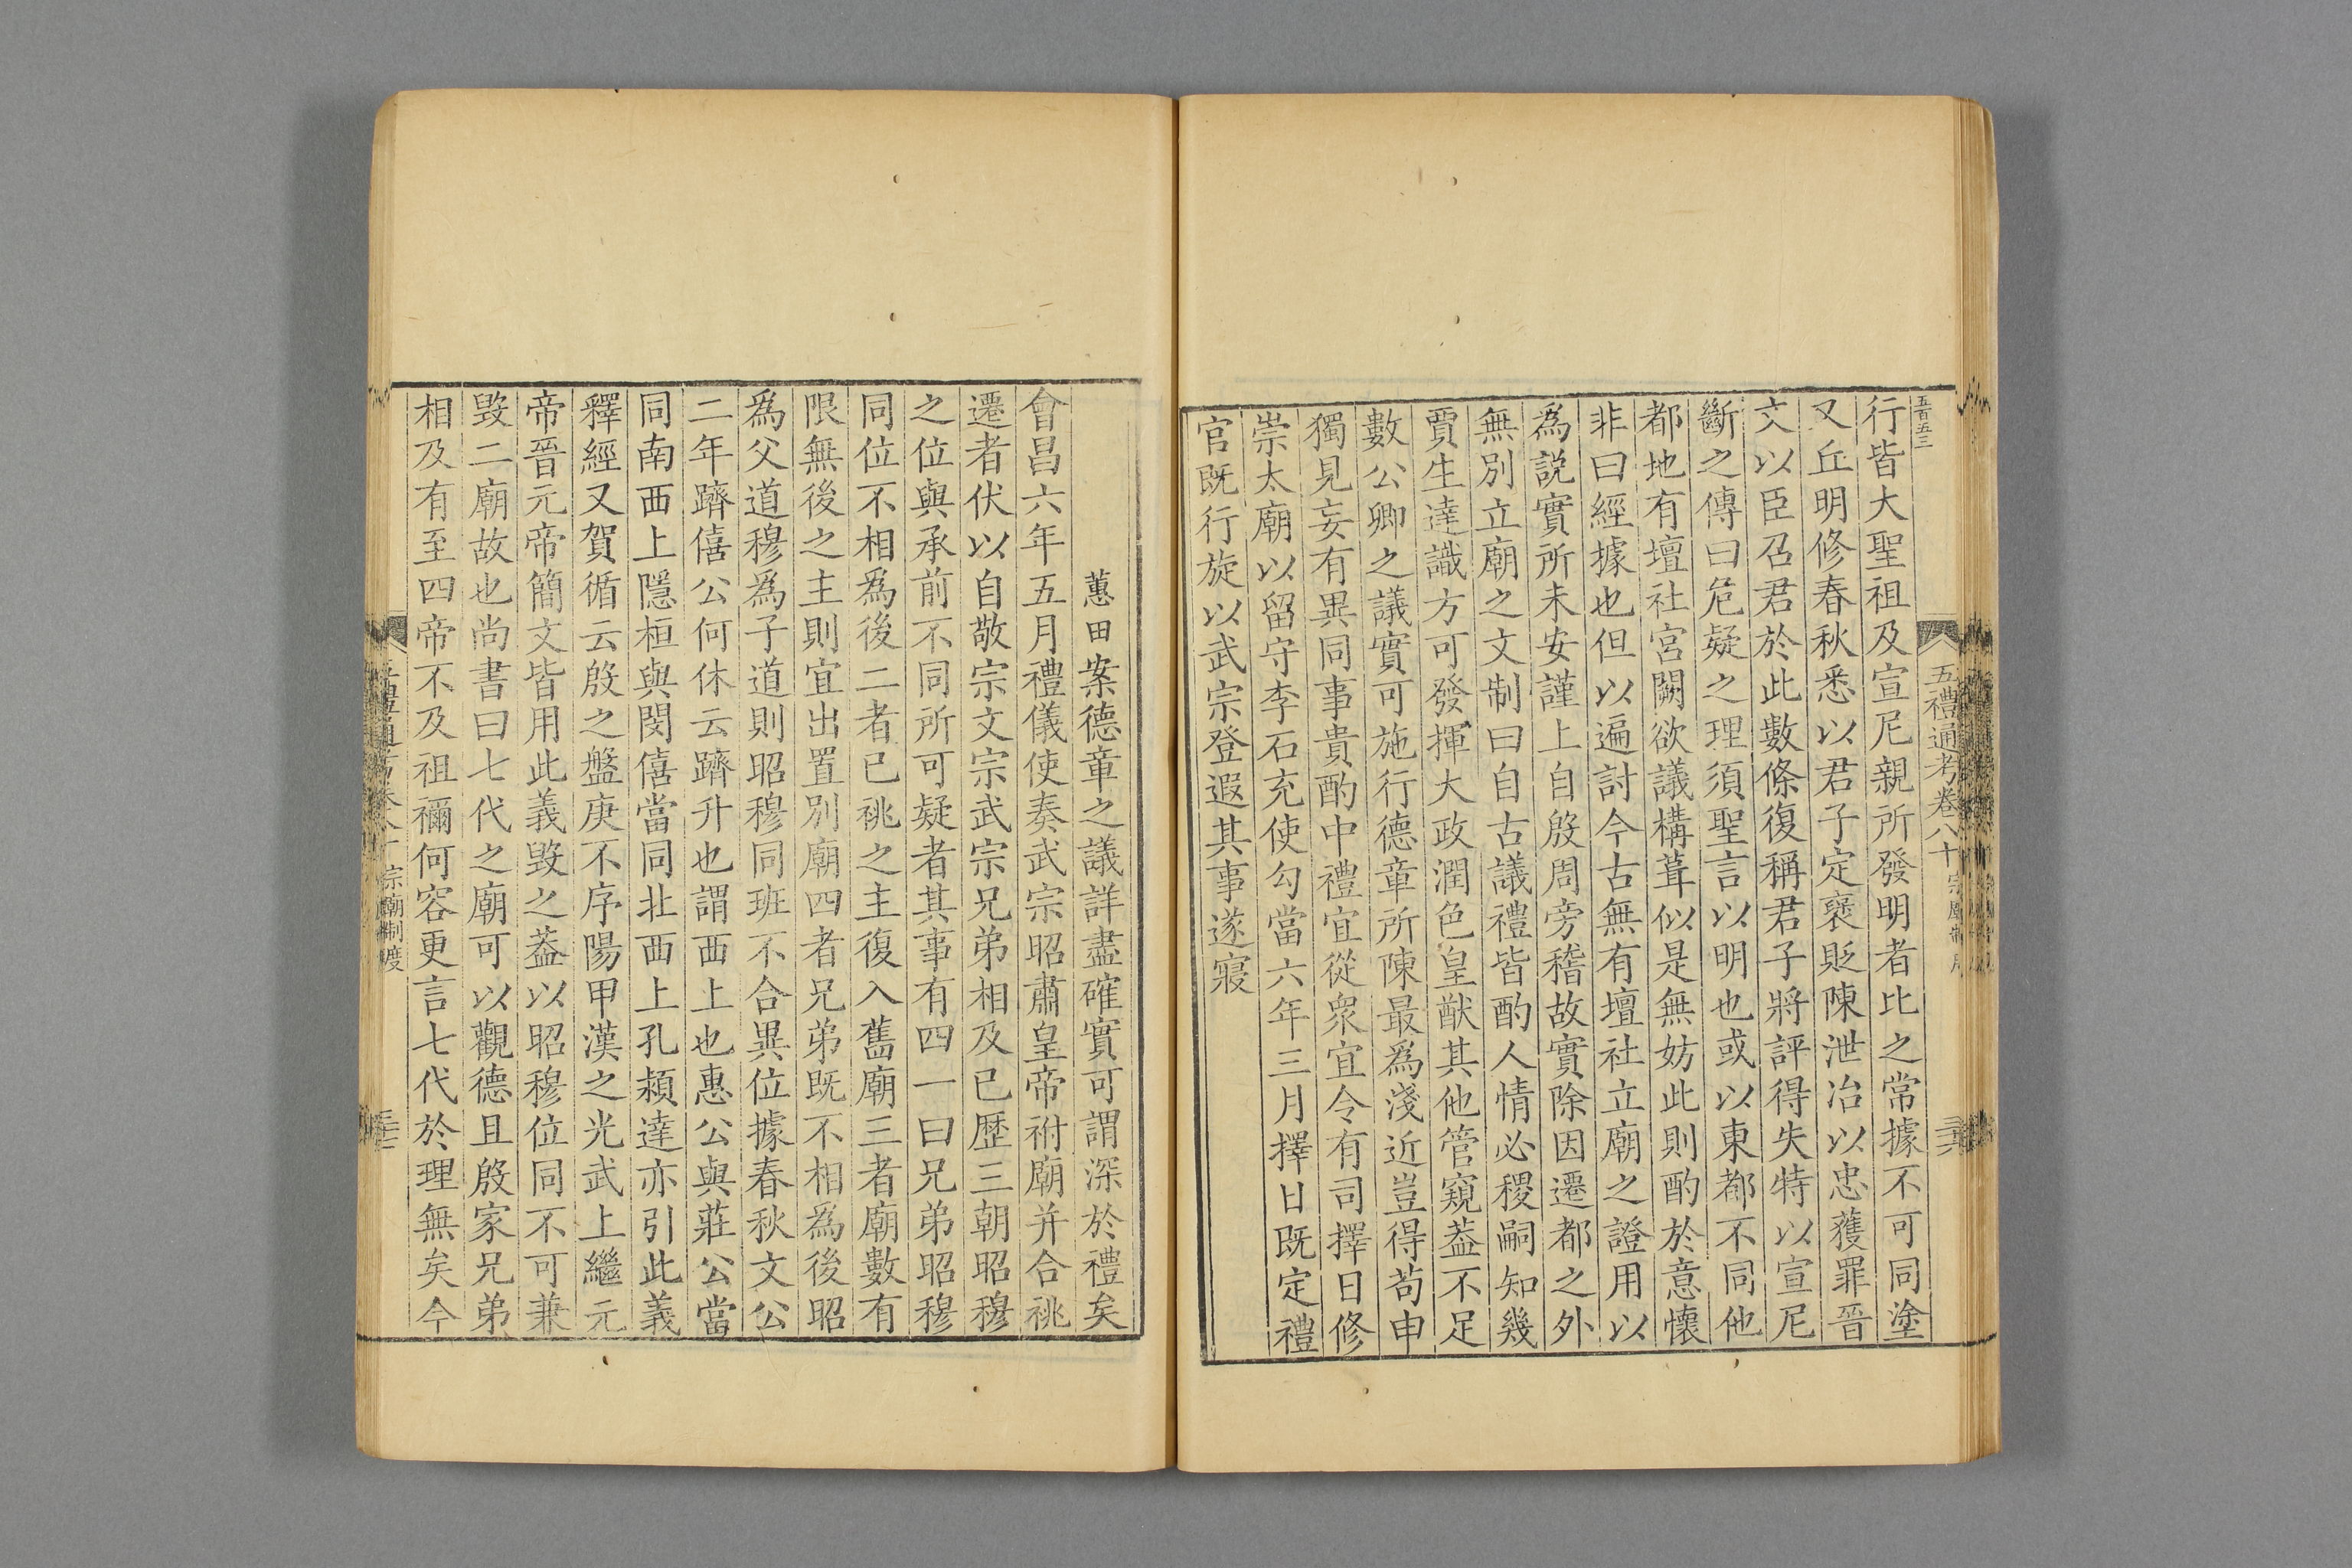 五百五三
五禮通考卷八十
行皆大聖祖及宣尼親所發明者比之常據不可同塗
又丘明修春秋悉以君子定褒貶陳泄冶以忠獲罪晉
文以臣召君於此數條復稱君子將評得失特以宣尼
斷之傳曰危疑之理須聖言以明也或以東都不同他
都地有壇社宮闕欲議構葺似是無妨此則酌於意懷
非曰經據也但以遍討今古無有壇社立廟之證用以
為說實所未安謹上自殷周旁稽故實除因遷都之外
無別立廟之文制曰自古議禮皆酌人情必稷嗣知幾
賈生達識方可發揮大政潤色皇猷其他管窺葢不足
數公卿之議實可施行德章所陳最為淺近豈得苟申
獨見妄有異同事貴酌中禮宜從衆宜令有司擇日修
崇太廟以留守李石充使勾當六年三月擇日既定禮
官既行旋以武宗登遐其事遂寢
蕙田案德章之議詳盡確實可謂深於禮矣
會昌六年五月禮儀使奏武宗昭肅皇帝祔廟并合祧
遷者伏以自敬宗文宗武宗兄弟相及已歷三朝昭穆
之位與承前不同所可疑者其事有四一曰兄弟昭穆
同位不相為後二者已祧之主復入舊廟三者廟數有
限無後之主則宜出置別廟四者兄弟既不相為後昭
為父道穆為子道則昭穆同班不合異位據春秋文公
二年躋僖公何休云躋升也謂西上也惠公與莊公當
同南西上隱桓與閔僖當同北西上孔熲達亦引此義
釋經又賀循云殷之盤庚不序陽甲漢之光武上繼元
帝晉元帝簡文皆用此義毀之葢以昭穆位同不可兼
毀二廟故也尚書曰七代之廟可以觀德且殷家兄弟
相及有至四帝不及祖禰何容更言七代於理無矣今
宗廟制度